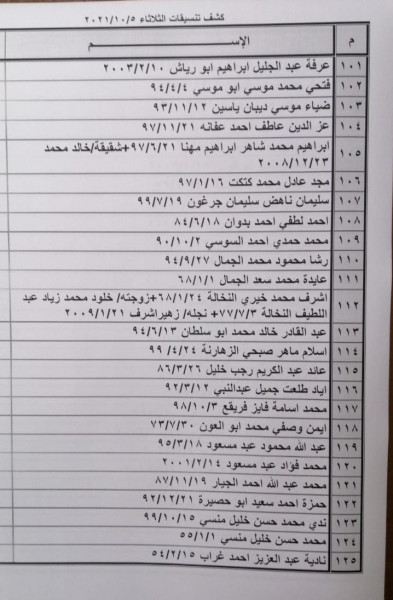 كشف تنسيقات الثلاثاء ٢٠٢١/١٠/٥
م الإســـــــم
١٠١ عرفة عبد الجليل ابراهيم ابو رياش ٢٠٠٣/٢/١٠
١٠٢ فتحي محمد موسي ابو موسي ٩٤/٤/٤
١٠٣ ضياء موسي ديبان ياسين ٩٣/١١/١٢
١٠٤ عز الدين عاطف احمد عفانه ٩٧/١١/٢١
١٠٥ ابراهيم محمد شاهر ابراهيم مهنا ٩٧/٦/٢١+شقيقة/خالد محمد
٢٠٠٨/١٢/٢٣
١٠٦ مجد عادل محمد كتكت ٩٧/١/١٦
١٠٧ سليمان ناهض سليمان جرغون ٩٩/٧/١٩
١٠٨ احمد لطفي احمد بدوان ٨٤/٦/١٨
١٠٩ محمد حمدي احمد السوسي ٩٠/١٠/٢
١١٠ رشا محمود محمد الجمال ٩٤/٩/٢٧
١١١ عايدة محمد سعد الجمال ٦٨/١/١
١١٢ اشرف محمد خيري النخالة ٦٨/١/٢٤+زوجته/ خلود محمد زياد عبد
اللطيف النخالة ٧٧/٧/٣+ نجله/ زهيراشرف ٢٠٠٩/١/٢١
١١٣ عبد القادر خالد محمد ابو سلطان ٩٤/٦/١٣
١١٤ اسلام ماهر صبحي الزهارنة ٢٤/٤/ ٩٩
١١٥ عائد عبد الكريم رجب خليل ٨٦/٣/٢٦
١١٦ اياد طلعت جميل عبدالنبي ٩٢/٣/١٢
١١٧ محمد اسامة فايز قريقع ٩٨/١٠/٣
١١٨ ايمن وصفي محمد ابو العون ٧٣/٧/٣٠
١١٩ عبد الله محمود عبد مسعود ٩٥/٣/١٨
١٢٠ محمد فؤاد عبد مسعود ٢٠٠١/٢/١٤
١٢١ محمد عبد الله احمد الجيار ٨٧/١١/١٩
١٢٢ حمزة احمد سعيد ابو حصيرة ٩٢/١٢/٢١
١٢٣ ندي محمد حسن خليل منسي ٩٩/١٠/١٥
١٢٤ محمد حسن خليل منسي ٥٥/١/١
١٢٥ نادية عبد العزيز احمد غراب ٥٤/٢/١٥